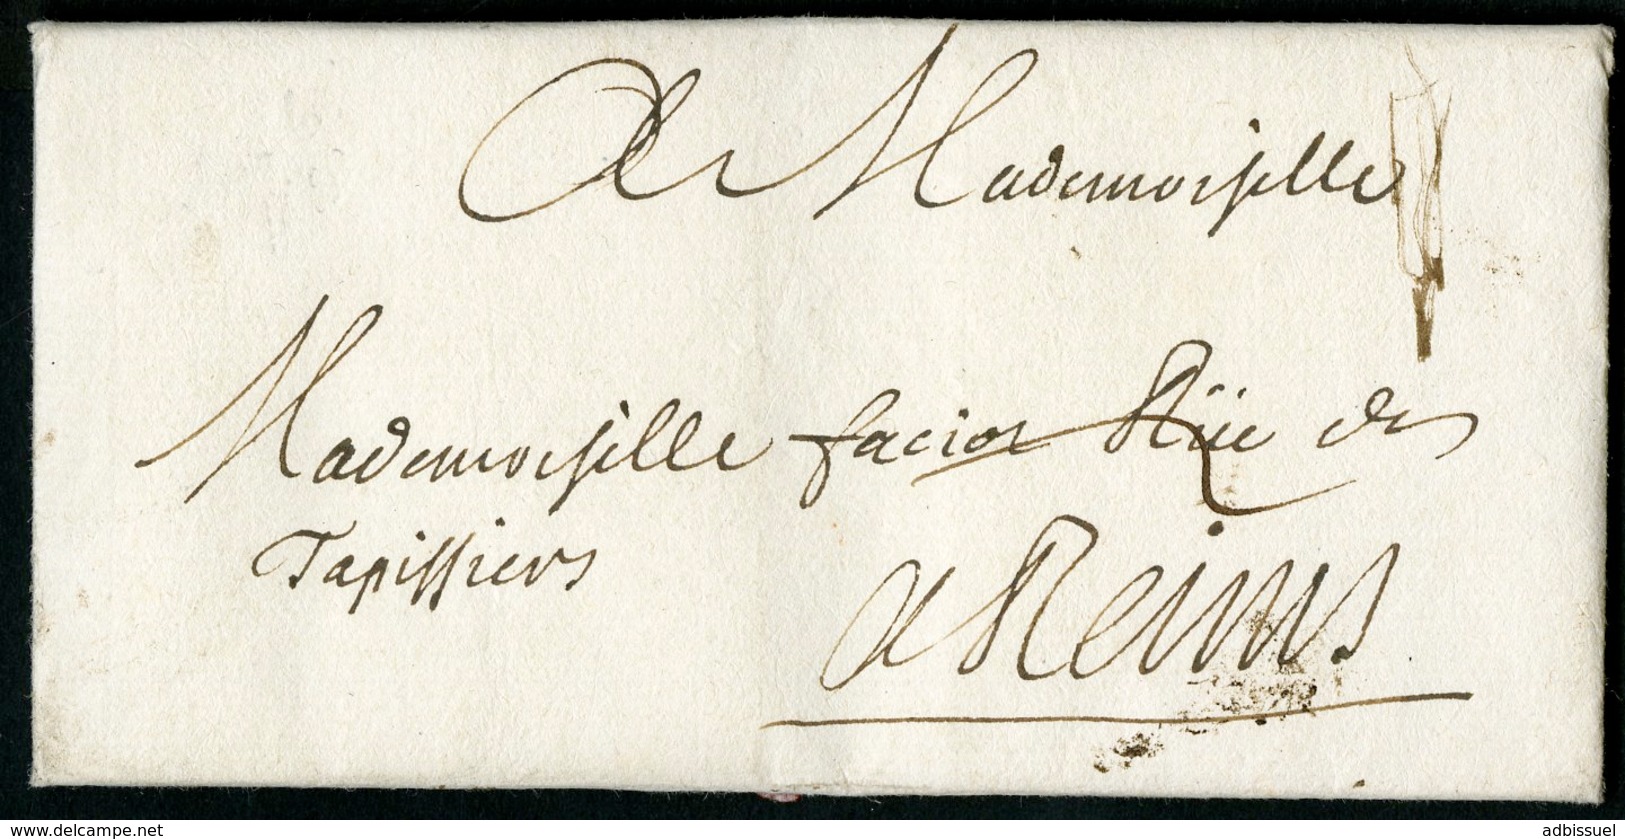 A Mademoiselle
Mademoiselle facior Rüe des
Tapissiers
a Reims.
delcampe.net
adbissuel